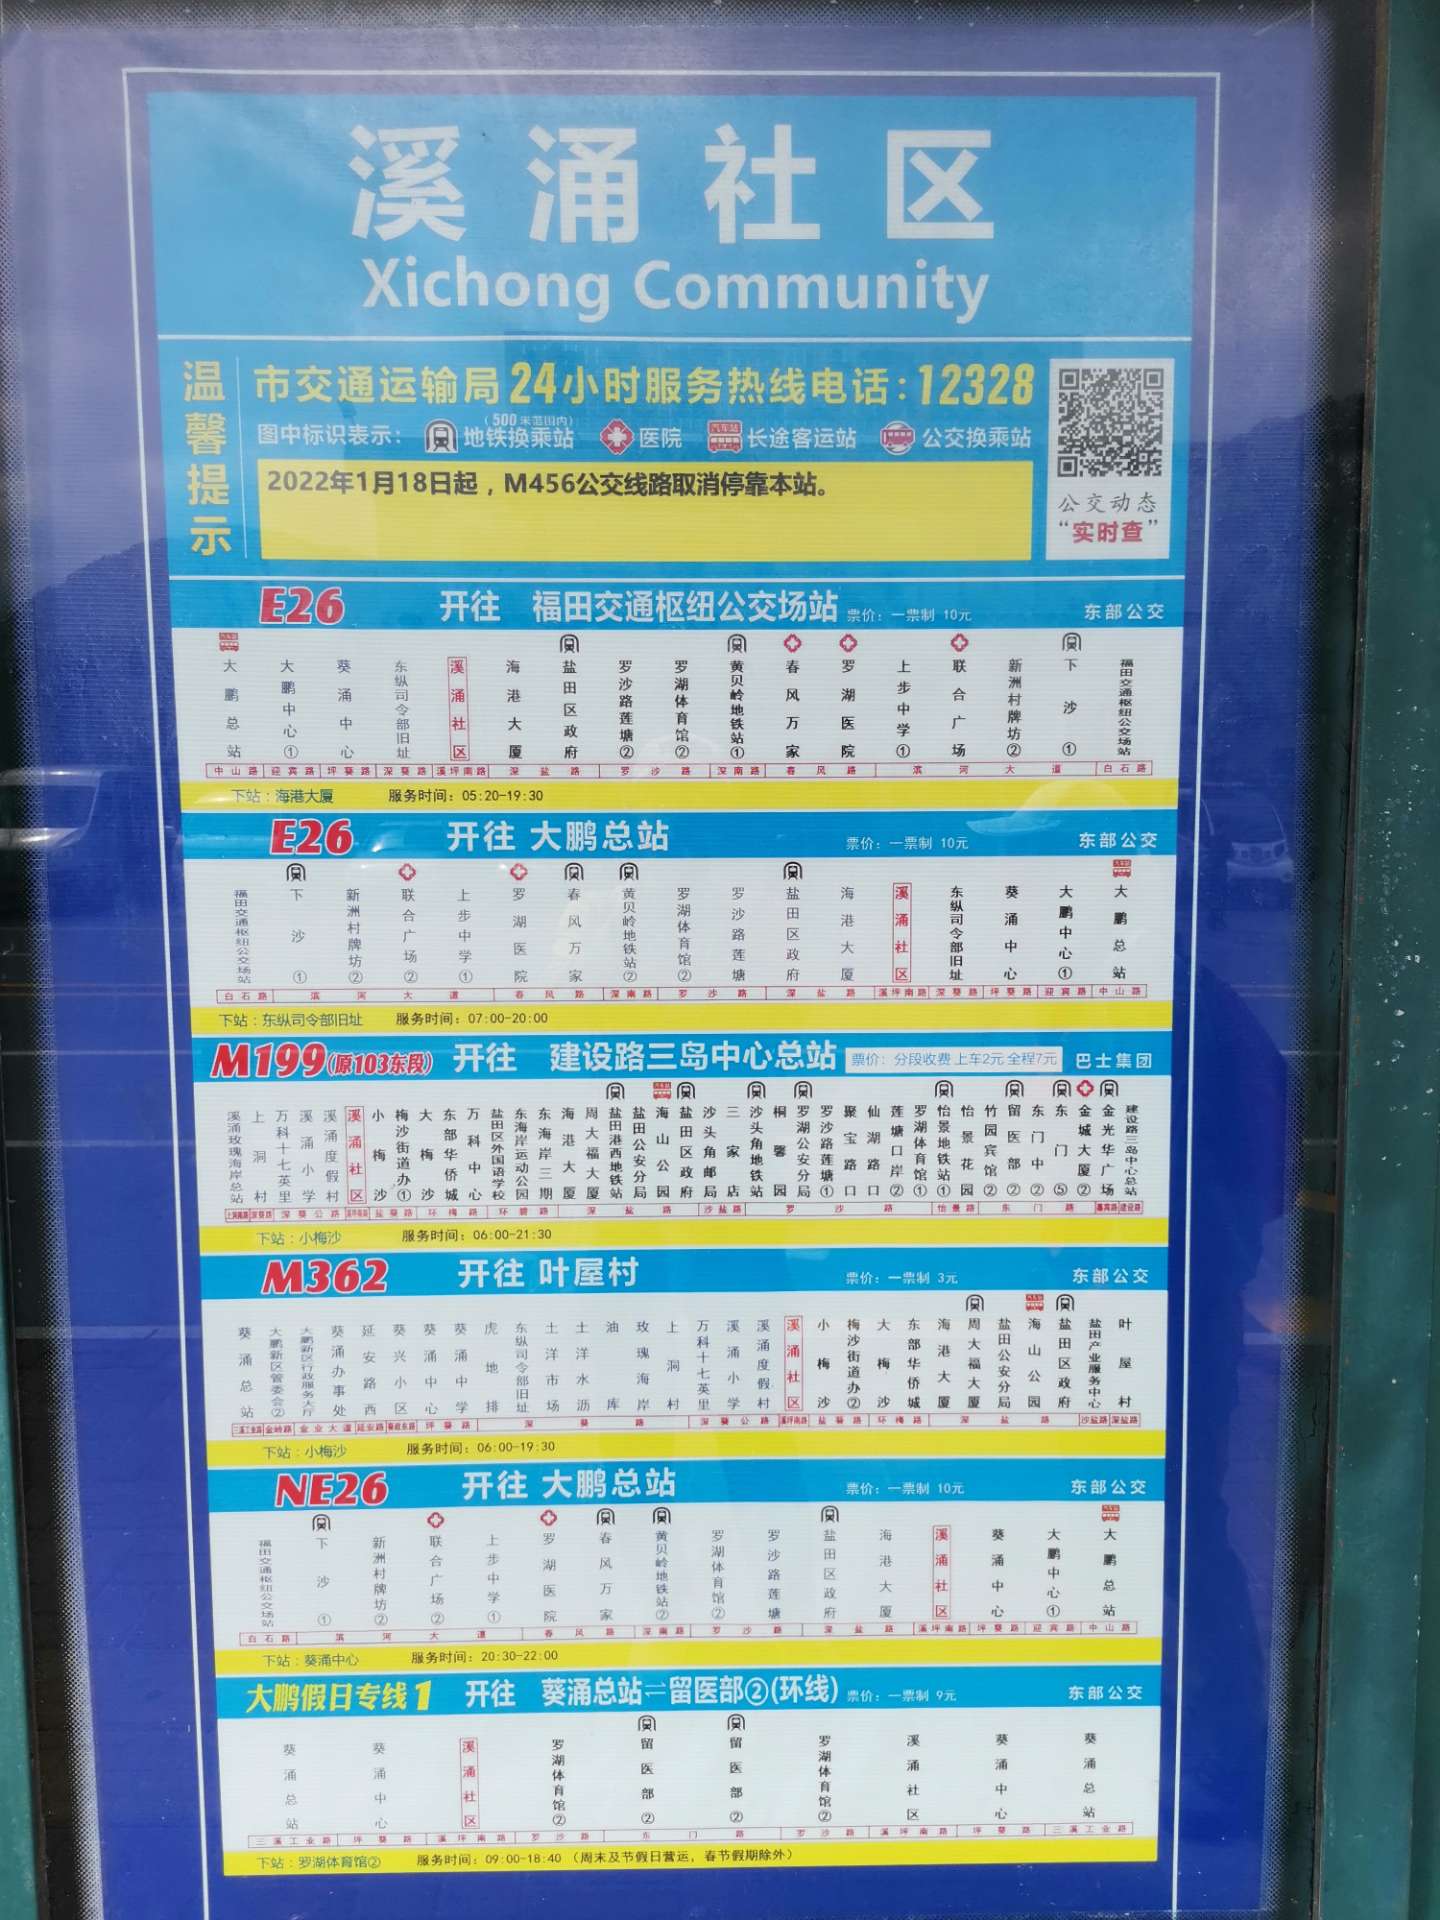 溪涌社区
Xichong Community
温馨提示
市交通运输局24小时服务热线电话：12328
图中标识表示： 地铁换乘站（500米范围内） 医院 汽车站 长途客运站 公交换乘站
2022年1月18日起，M456公交线路取消停靠本站。
公交动态
“实时查”
E26 开往 福田交通枢纽公交场站 票价：一票制 10元 东部公交
大鹏总站 大鹏中心① 葵涌中心 东纵司令部旧址 溪涌社区 海港大厦 盐田区政府 罗沙路莲塘② 罗湖体育馆② 黄贝岭地铁站① 春风万家 罗湖医院 上步中学① 联合广场 新洲村牌坊② 下沙① 福田交通枢纽公交场站
中山路 迎宾路 坪葵路 深葵路 溪坪南路 深盐路 罗沙路 深南路 春风路 滨河大道 白石路
下站：海港大厦 服务时间：05:20-19:30
E26 开往 大鹏总站 票价：一票制 10元 东部公交
福田交通枢纽公交场站 下沙① 新洲村牌坊② 联合广场② 上步中学① 罗湖医院 春风万家 黄贝岭地铁站② 罗湖体育馆② 罗沙路莲塘 盐田区政府 海港大厦 溪涌社区 东纵司令部旧址 葵涌中心 大鹏中心① 大鹏总站
白石路 滨河大道 春风路 深南路 罗沙路 深盐路 溪坪南路 深葵路 坪葵路 迎宾路 中山路
下站：东纵司令部旧址 服务时间：07:00-20:00
M199(原103东段) 开往 建设路三岛中心总站 票价：分段收费 上车2元 全程7元 巴士集团
溪涌玫瑰海岸总站 上洞村 万科十七英里 溪涌小学 溪涌度假村 溪涌社区 小梅沙 梅沙街道办① 大梅沙 东部华侨城 万科中心 盐田区外国语学校 东海岸运动公园 东海岸三期 海港大厦 周大福大厦 盐田港西地铁站 盐田公安分局 海山公园 盐田区政府 沙头角邮局 三家店 沙头角地铁站 桐馨园 罗湖公安分局 罗沙路莲塘① 聚宝路口 仙湖路口 莲塘口岸② 罗湖体育馆① 怡景地铁站① 怡景花园 竹园宾馆② 留医部② 东门中② 东门⑤ 金城大厦② 金光华广场 建设路三岛中心总站
深葵路 深葵公路 溪坪南路 盐葵路 环梅路 环碧路 深盐路 沙盐路 罗沙路 怡景路 东门路 嘉宾路 建设路
下站：小梅沙 服务时间：06:00-21:30
M362 开往 叶屋村 票价：一票制 3元 东部公交
葵涌总站 大鹏新区管委会② 大鹏新区行政服务大厅 葵涌办事处 延安路 葵兴小区 葵涌中心 葵涌中学 虎地排 东纵司令部旧址 土洋市场 土洋水沥 油库 玫瑰海岸 上洞村 万科十七英里 溪涌小学 溪涌度假村 溪涌社区 小梅沙 梅沙街道办② 大梅沙 东部华侨城 海港大厦 周大福大厦 盐田公安分局 海山公园 盐田区政府 盐田产业服务中心 叶屋村
三溪工业路 金岭路 金业大道 延安路 葵政东路 坪葵路 深葵路 深葵公路 溪坪南路 盐葵路 环梅路 深盐路 沙盐路 深盐路
下站：小梅沙 服务时间：06:00-19:30
NE26 开往 大鹏总站 票价：一票制 10元 东部公交
福田交通枢纽公交场站 下沙① 新洲村牌坊② 联合广场② 上步中学① 罗湖医院 春风万家 黄贝岭地铁站② 罗湖体育馆② 罗沙路莲塘 盐田区政府 海港大厦 溪涌社区 葵涌中心 大鹏中心① 大鹏总站
白石路 滨河大道 春风路 深南路 罗沙路 深盐路 溪坪南路 坪葵路 迎宾路 中山路
下站：葵涌中心 服务时间：20:30-22:00
大鹏假日专线1 开往 葵涌总站⇌留医部②(环线) 票价：一票制 9元 东部公交
葵涌总站 葵涌中心 溪涌社区 罗湖体育馆② 留医部② 留医部② 罗湖体育馆② 溪涌社区 葵涌中心 葵涌总站
三溪工业路 坪葵路 溪坪南路 罗沙路 东门路 罗沙路 溪坪南路 坪葵路 三溪工业路
下站：罗湖体育馆② 服务时间：09:00-18:40 （周末及节假日营运，春节假期除外）